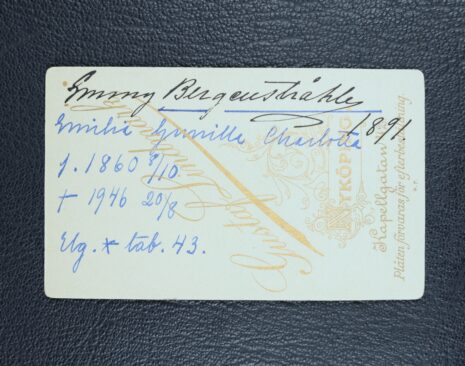 Emmy Bergenstråhle
1891.
Emilia Gunilla Charlotta
f. 1860 9/10.
† 1946 20/8
Elg. * tab. 43.
Gustaf Lindstrand
NYKÖPING
Kapellgatan
Plåten förvaras för efterbeställning.